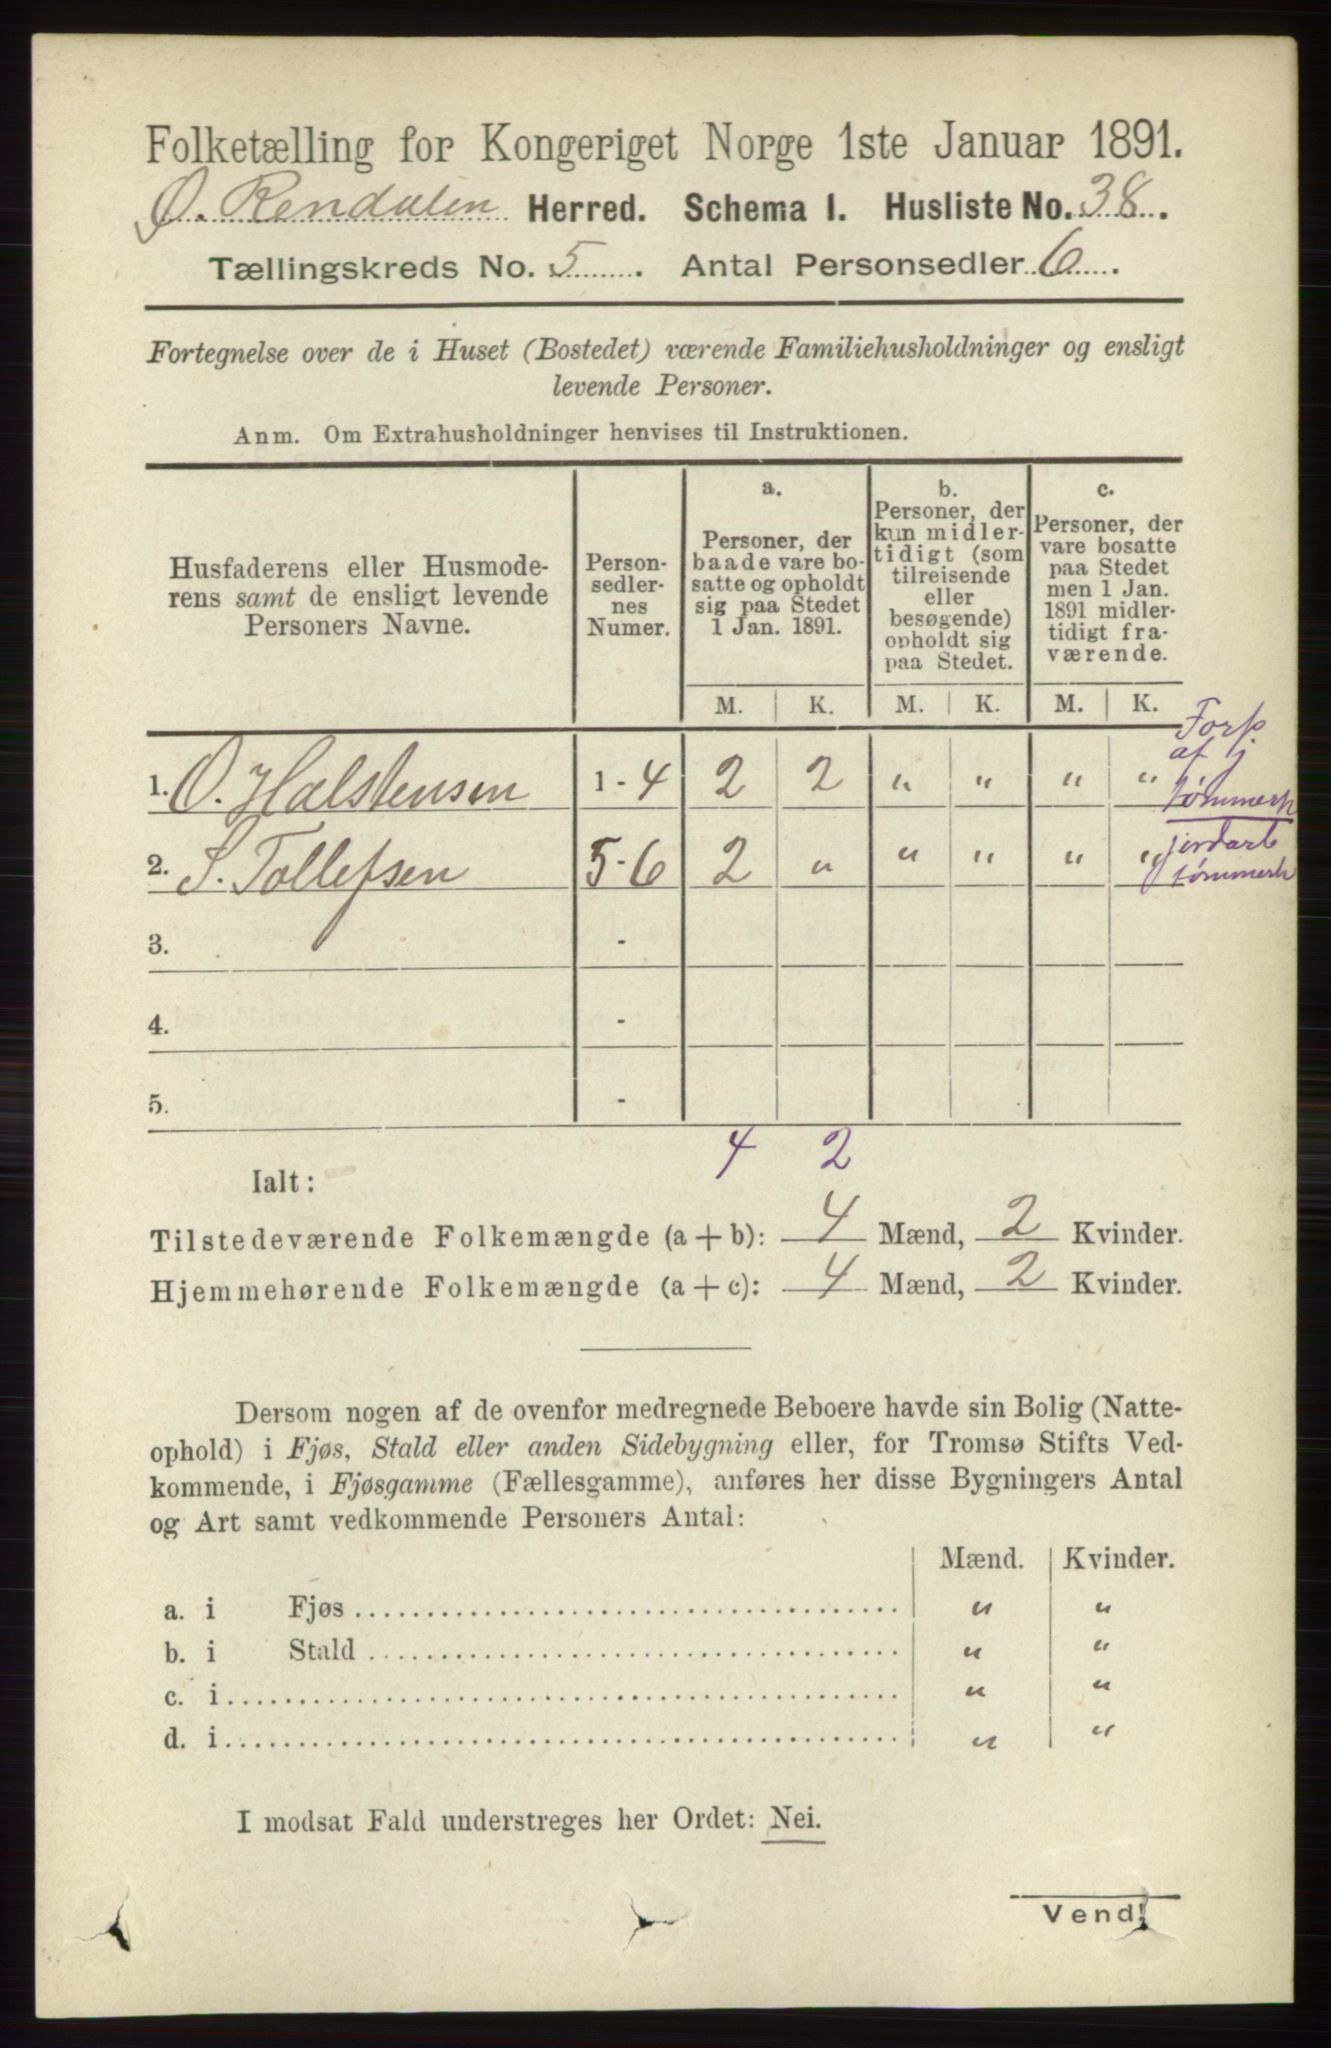 Folketælling for Kongeriget Norge 1ste Januar 1891.
Ø. Rendalen Herred. Schema I. Husliste No. 38.
Tællingskreds No. 5. Antal Personsedler 6.
Fortegnelse over de i Huset (Bostedet) værende Familiehusholdninger og ensligt
levende Personer.
Anm. Om Extrahusholdninger henvises til Instruktionen.
Husfaderens eller Husmode-
rens samt de ensligt levende
Personers Navne.
Person-
sedler-
nes
Numer.
a.
Personer, der
baade vare bo-
satte og opholdt
sig paa Stedet
1 Jan. 1891.
b.
Personer, der
kun midler-
tidigt (som
tilreisende
eller
besøgende)
opholdt sig
paa Stedet.
c.
Personer, der
vare bosatte
paa Stedet
men 1 Jan.
1891 midler-
tidigt fra-
værende.
M. K. M. K. M. K.
Forp
af j
tømmerk
1. O. Halstensen 1 - 4 2 2 " " " "
jordarb
tømmerk
2. S. Tollefsen 5 - 6 2 " " " " "
3. -
4. -
5. -
4 2
Ialt:
Tilstedeværende Folkemængde (a + b): 4 Mænd, 2 Kvinder.
Hjemmehørende Folkemængde (a + c): 4 Mænd, 2 Kvinder.
Dersom nogen af de ovenfor medregnede Beboere havde sin Bolig (Natte-
ophold) i Fjøs, Stald eller anden Sidebygning eller, for Tromsø Stifts Ved-
kommende, i Fjøsgamme (Fællesgamme), anføres her disse Bygningers Antal
og Art samt vedkommende Personers Antal:
Mænd. Kvinder.
a. i Fjøs " "
b. i Stald " "
c. i " "
d. i " "
I modsat Fald understreges her Ordet: Nei.
Vend!